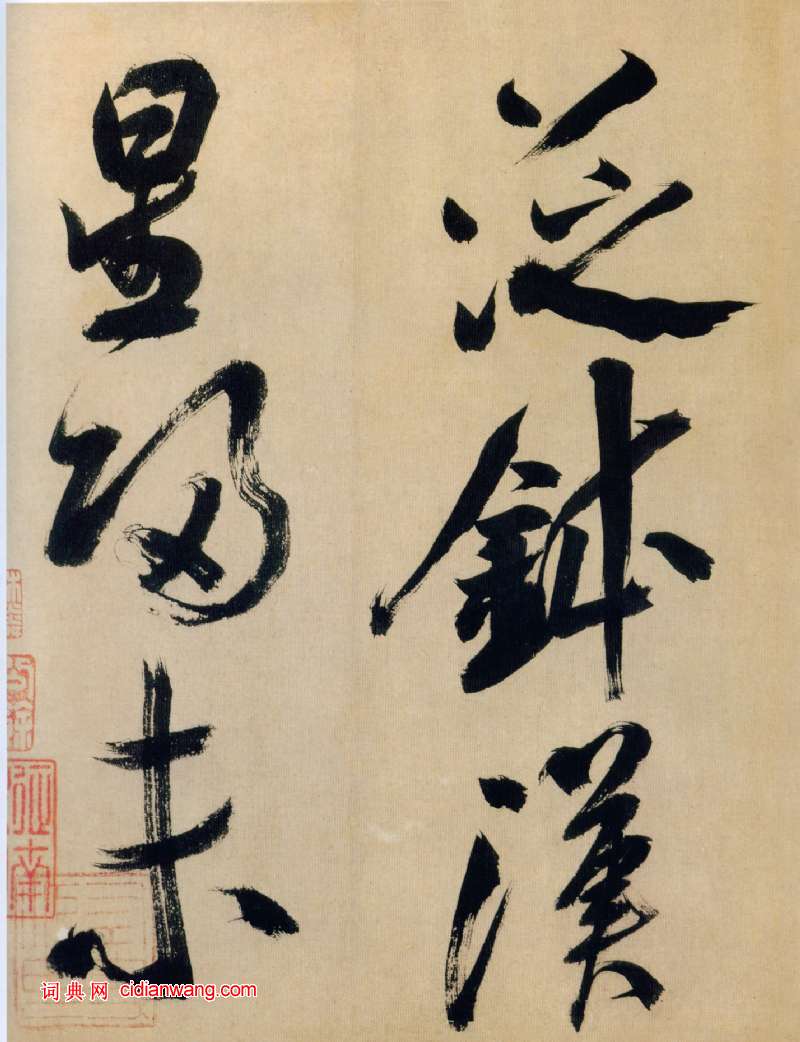 泛鉢漢
星歸未
词典网 cidianwang.com